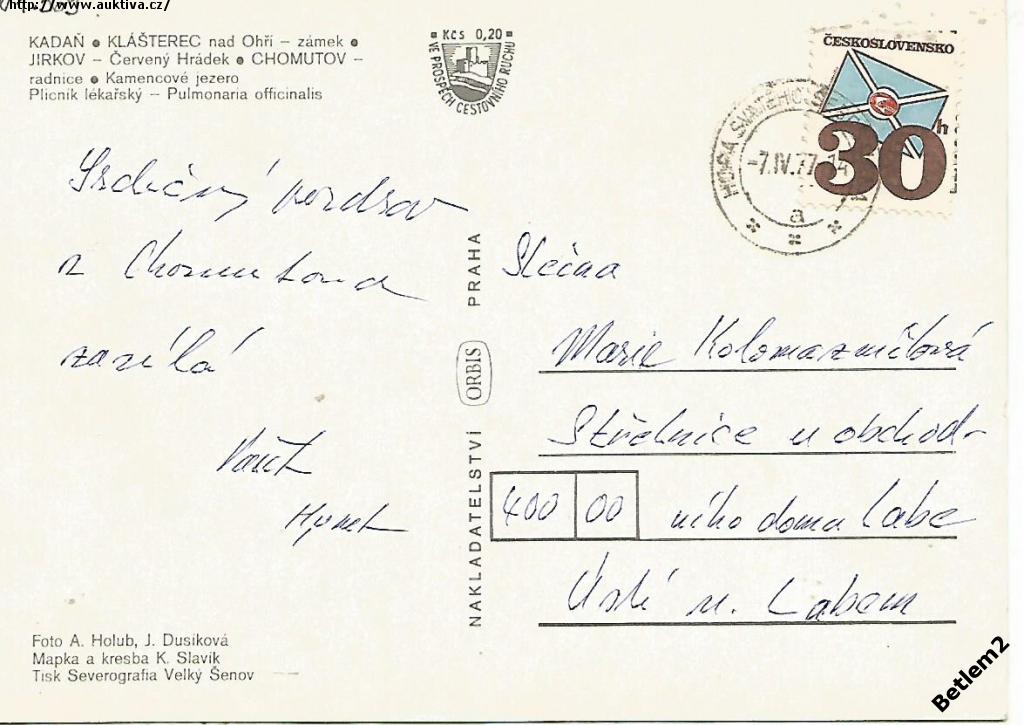 http://www.auktiva.cz/
KADAŇ ● KLÁŠTEREC nad Ohří – zámek ●
JIRKOV – Červený Hrádek ● CHOMUTOV –
radnice ● Kamencové jezero
Plicník lékařský – Pulmonaria officinalis
Kčs 0,20
VE PROSPĚCH CESTOVNÍHO RUCHU
ČESKOSLOVENSKO
30h
HORA SVATÉHO
-7.IV.77-14
a
Srdečný pozdrav
z Chomutova
zasílá
Hynek
NAKLADATELSTVÍ ORBIS PRAHA
Slečna
Marie Kolomazníčková
Střelnice u obchod-
400 00 ního domu Labe
Ústí n. Labem
Foto A. Holub, J. Dusíková
Mapka a kresba K. Slavík
Tisk Severografia Velký Šenov
Betlem2